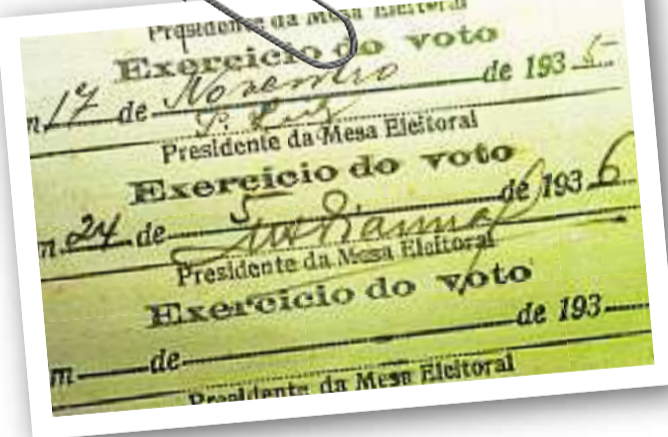 Presidente da Mesa Eleitoral
Exercicio do voto
m 17 de Novembro de 1935
Presidente da Mesa Eleitoral
Exercicio do voto
m 24 de 5 de 1936
Presidente da Mesa Eleitoral
Exercicio do voto
m de de 193
Presidente da Mesa Eleitoral